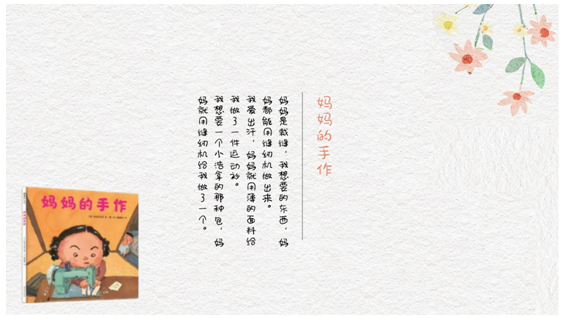 妈妈的手作
妈妈是裁缝，我想要的东西，妈
妈都能用缝纫机做出来。
我爱出汗，妈妈就用薄的面料给
我做了一件运动衫。
我想要一个小浩拿的那种包，妈
妈就用缝纫机给我做了一个。
妈妈的手作